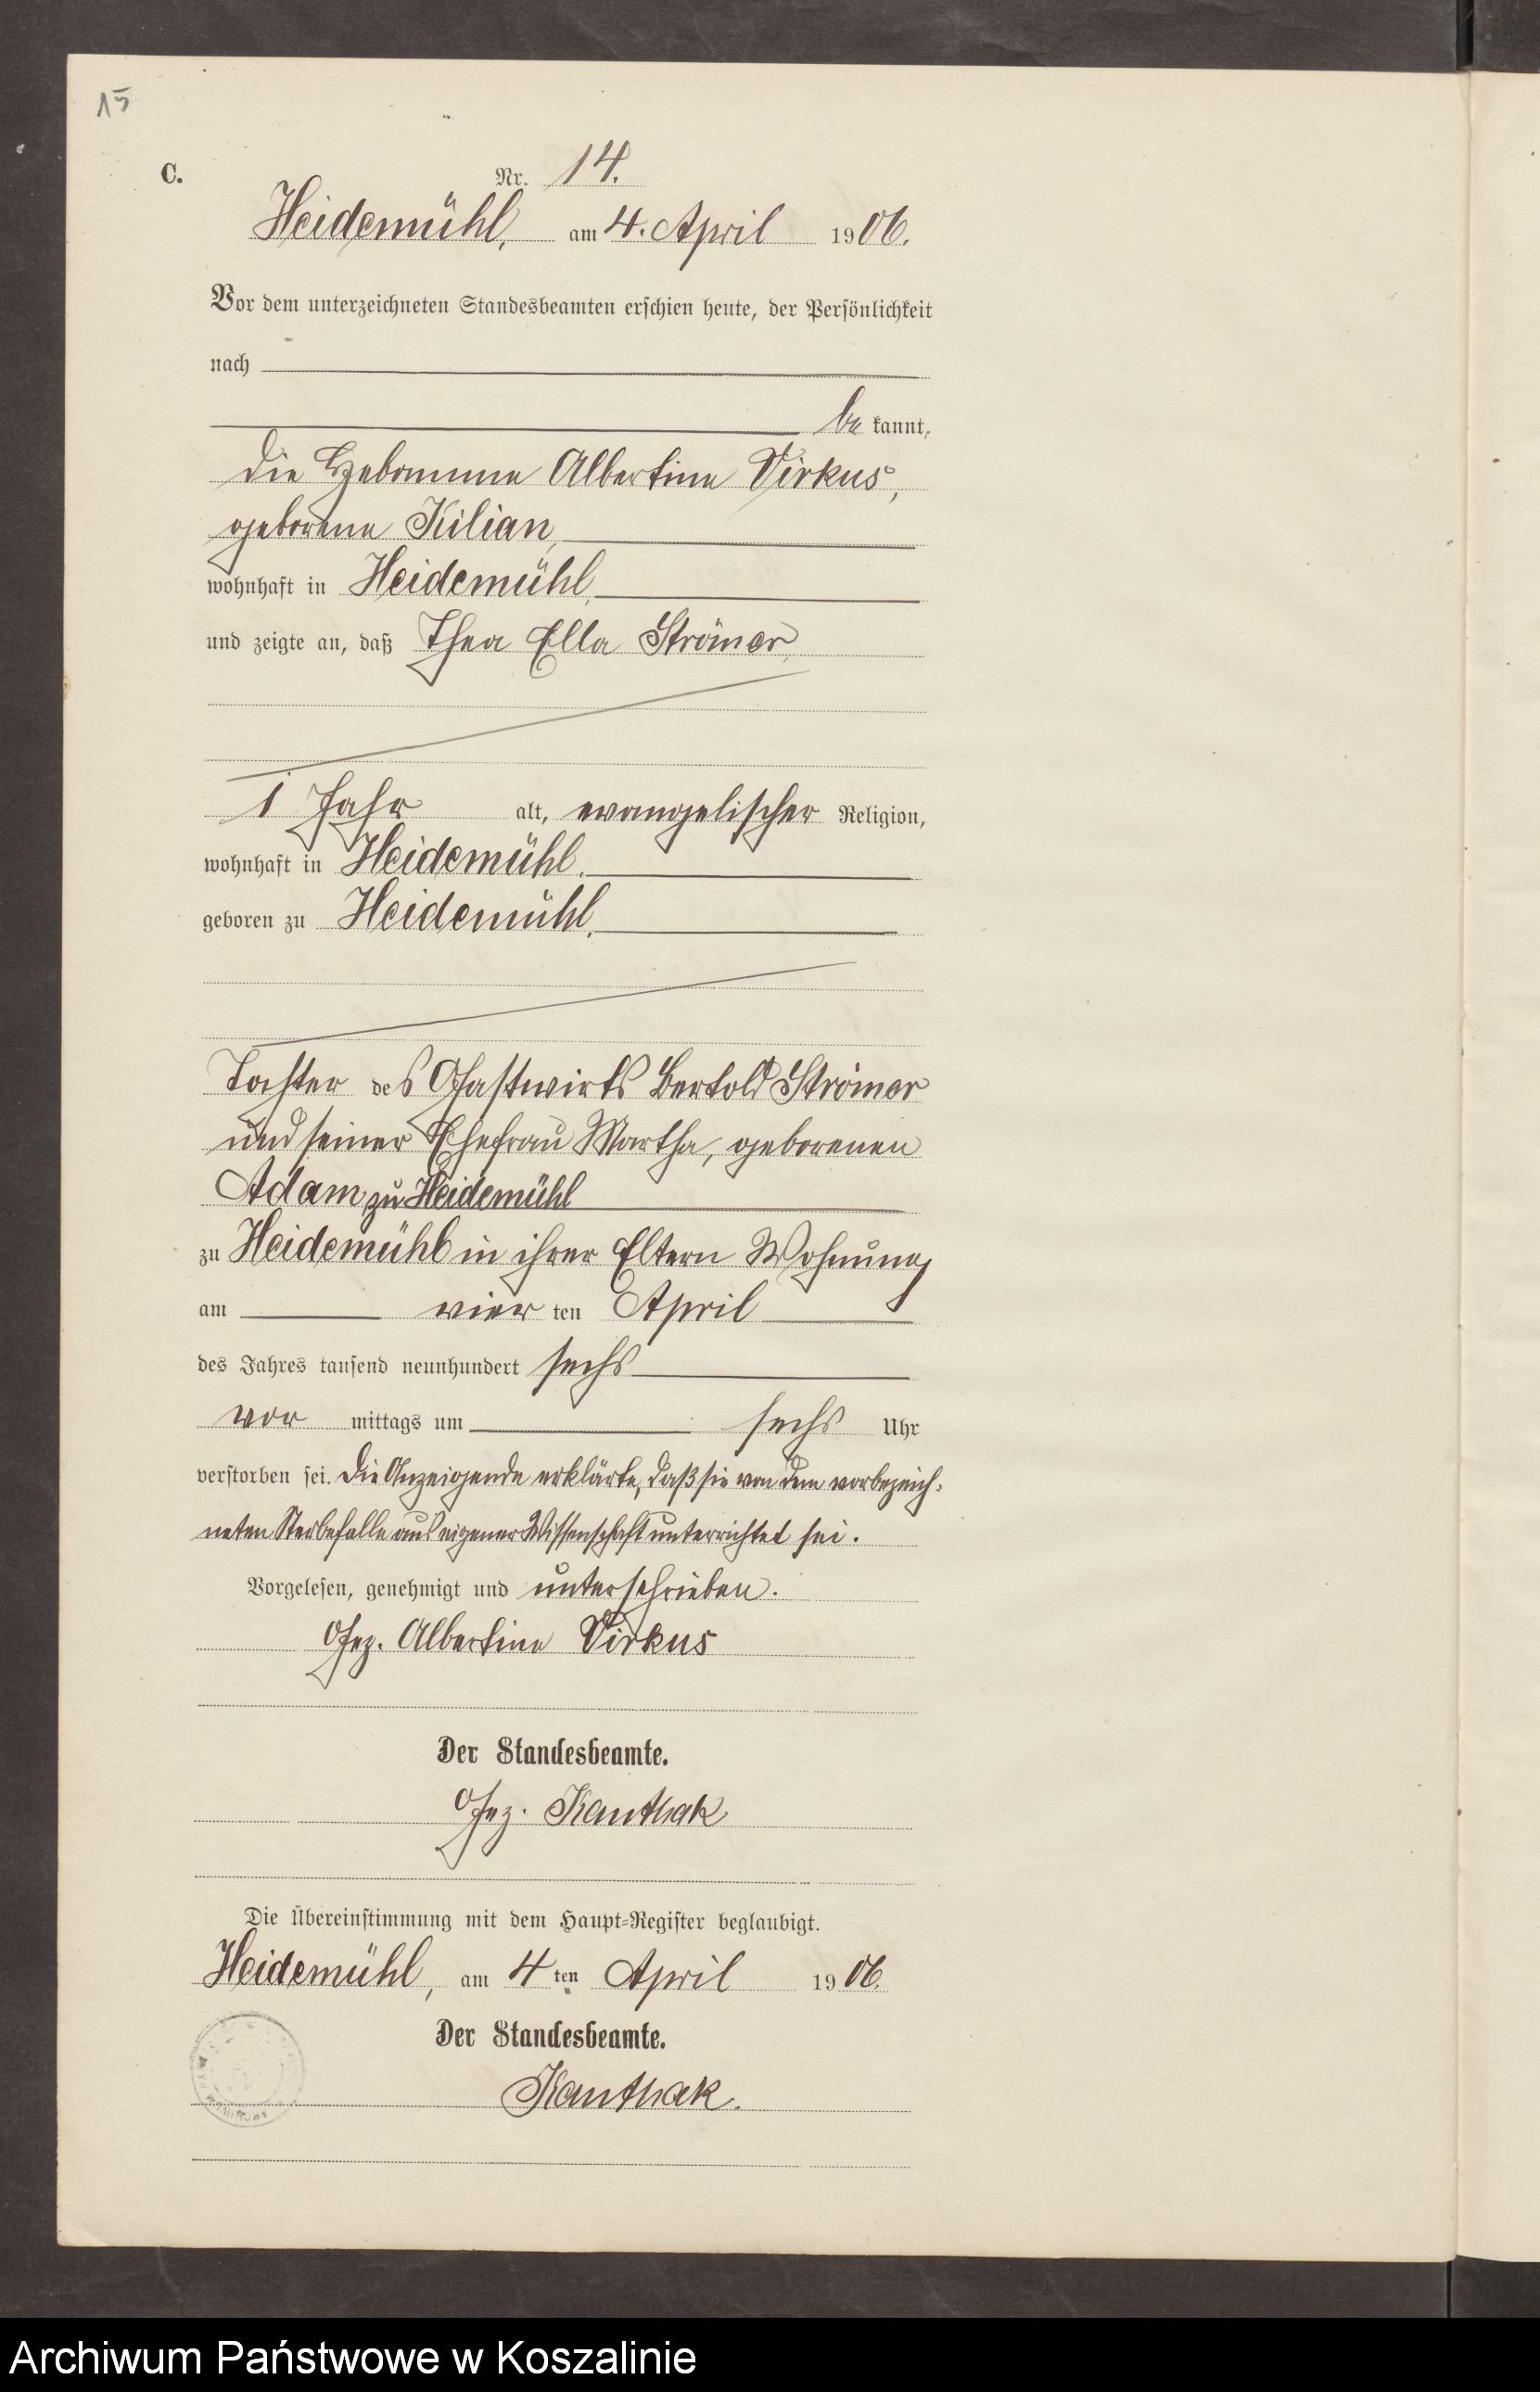 15
C.
Nr. 14.
Heidemühl, am 4. April 1906.
Vor dem unterzeichneten Standesbeamten erschien heute, der Persönlichkeit
nach
be kannt,
die Hebamme Albertine Virkus,
geborene Kilian,
wohnhaft in Heidemühl,
und zeigte an, daß Thea Ella Strömer,
1 Jahr alt, evangelischer Religion,
wohnhaft in Heidemühl,
geboren zu Heidemühl,
Tochter des Gastwirts Bertold Strömer
und seiner Ehefrau Martha, geborenen
Adam zu Heidemühl
zu Heidemühl in ihrer Eltern Wohnung
am vier ten April
des Jahres tausend neunhundert sechs
vor mittags um sechs Uhr
verstorben sei. Die Anzeigende erklärte, daß sie von dem vorbezeich-
neten Sterbefalle aus eigener Wissenschaft unterrichtet sei.
Vorgelesen, genehmigt und unterschrieben.
Gez. Albertine Virkus
Der Standesbeamte.
Gez. Kanthak
Die Übereinstimmung mit dem Haupt-Register beglaubigt.
Heidemühl, am 4ten April 1906.
Der Standesbeamte.
Kanthak.
Archiwum Państwowe w Koszalinie